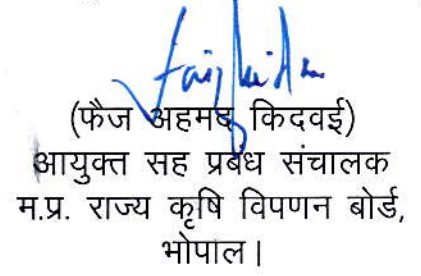 (फैज अहमद किदवई)
आयुक्त सह प्रबंध संचालक
म.प्र. राज्य कृषि विपणन बोर्ड,
भोपाल।